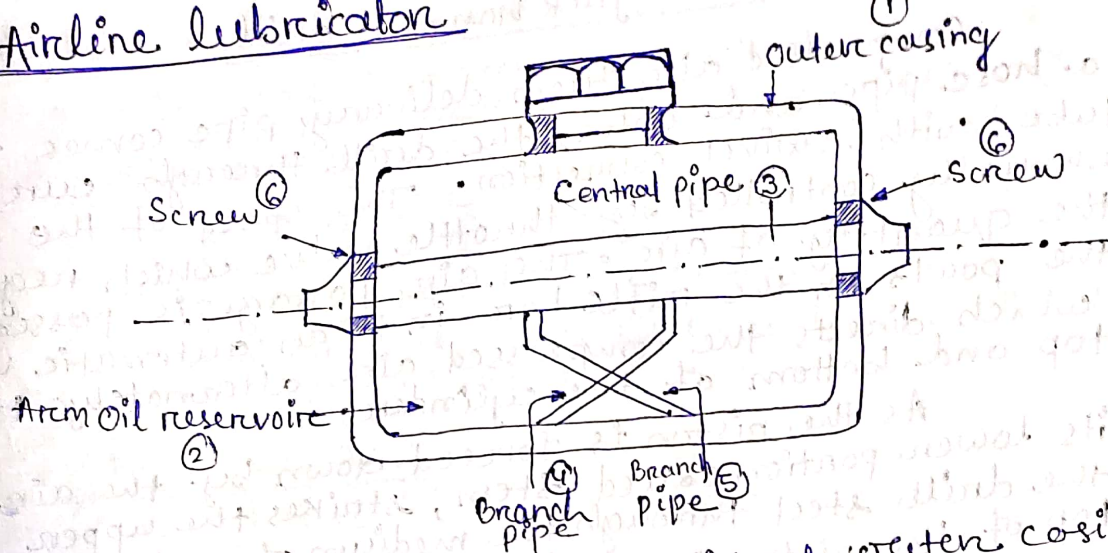 Airline lubricator
①
outer casing
⑥
Screw
Central pipe ③
Screw ⑥
Arm Oil reservoire
②
④
Branch
pipe
Branch
pipe ⑤